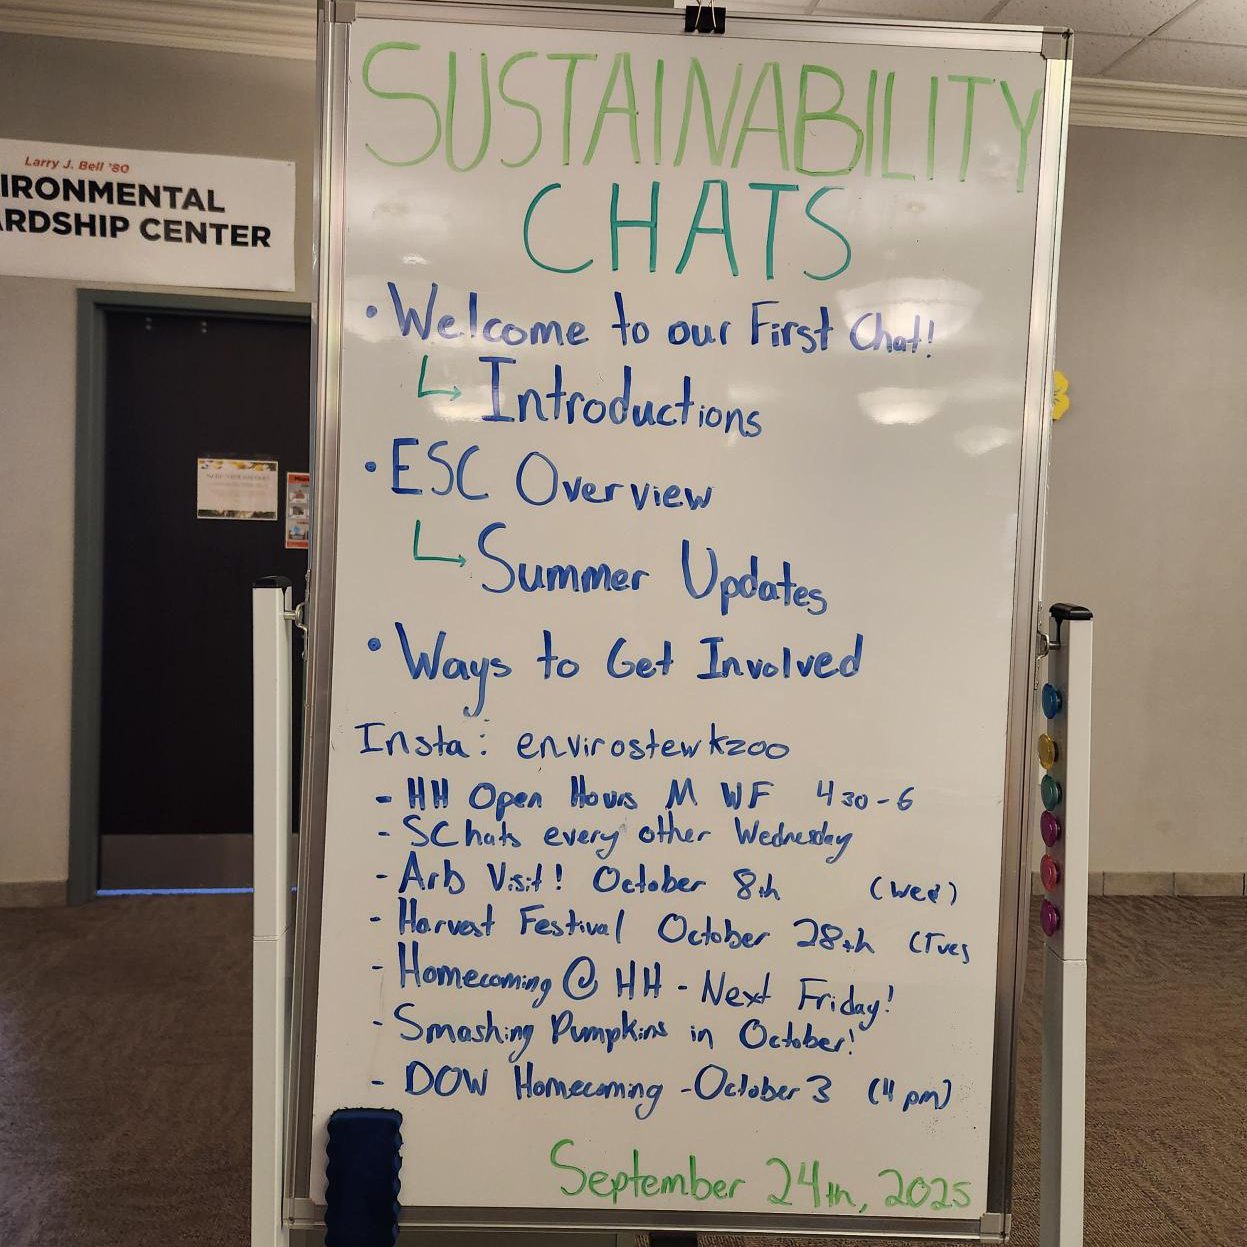 Larry J. Bell '80
IRONMENTAL
ARDSHIP CENTER
SUSTAINABILITY
CHATS
• Welcome to our First Chat!
↳ Introductions
• ESC Overview
↳ Summer Updates
• Ways to Get Involved
Insta: envirostewkzoo
- HH Open Hours M WF 430-6
- SChats every other Wednesday
- Arb Visit! October 8th (Wed)
- Harvest Festival October 28th (Tues
- Homecoming @ HH - Next Friday!
- Smashing Pumpkins in October!
- DOW Homecoming - October 3 (4 pm)
September 24th, 2025